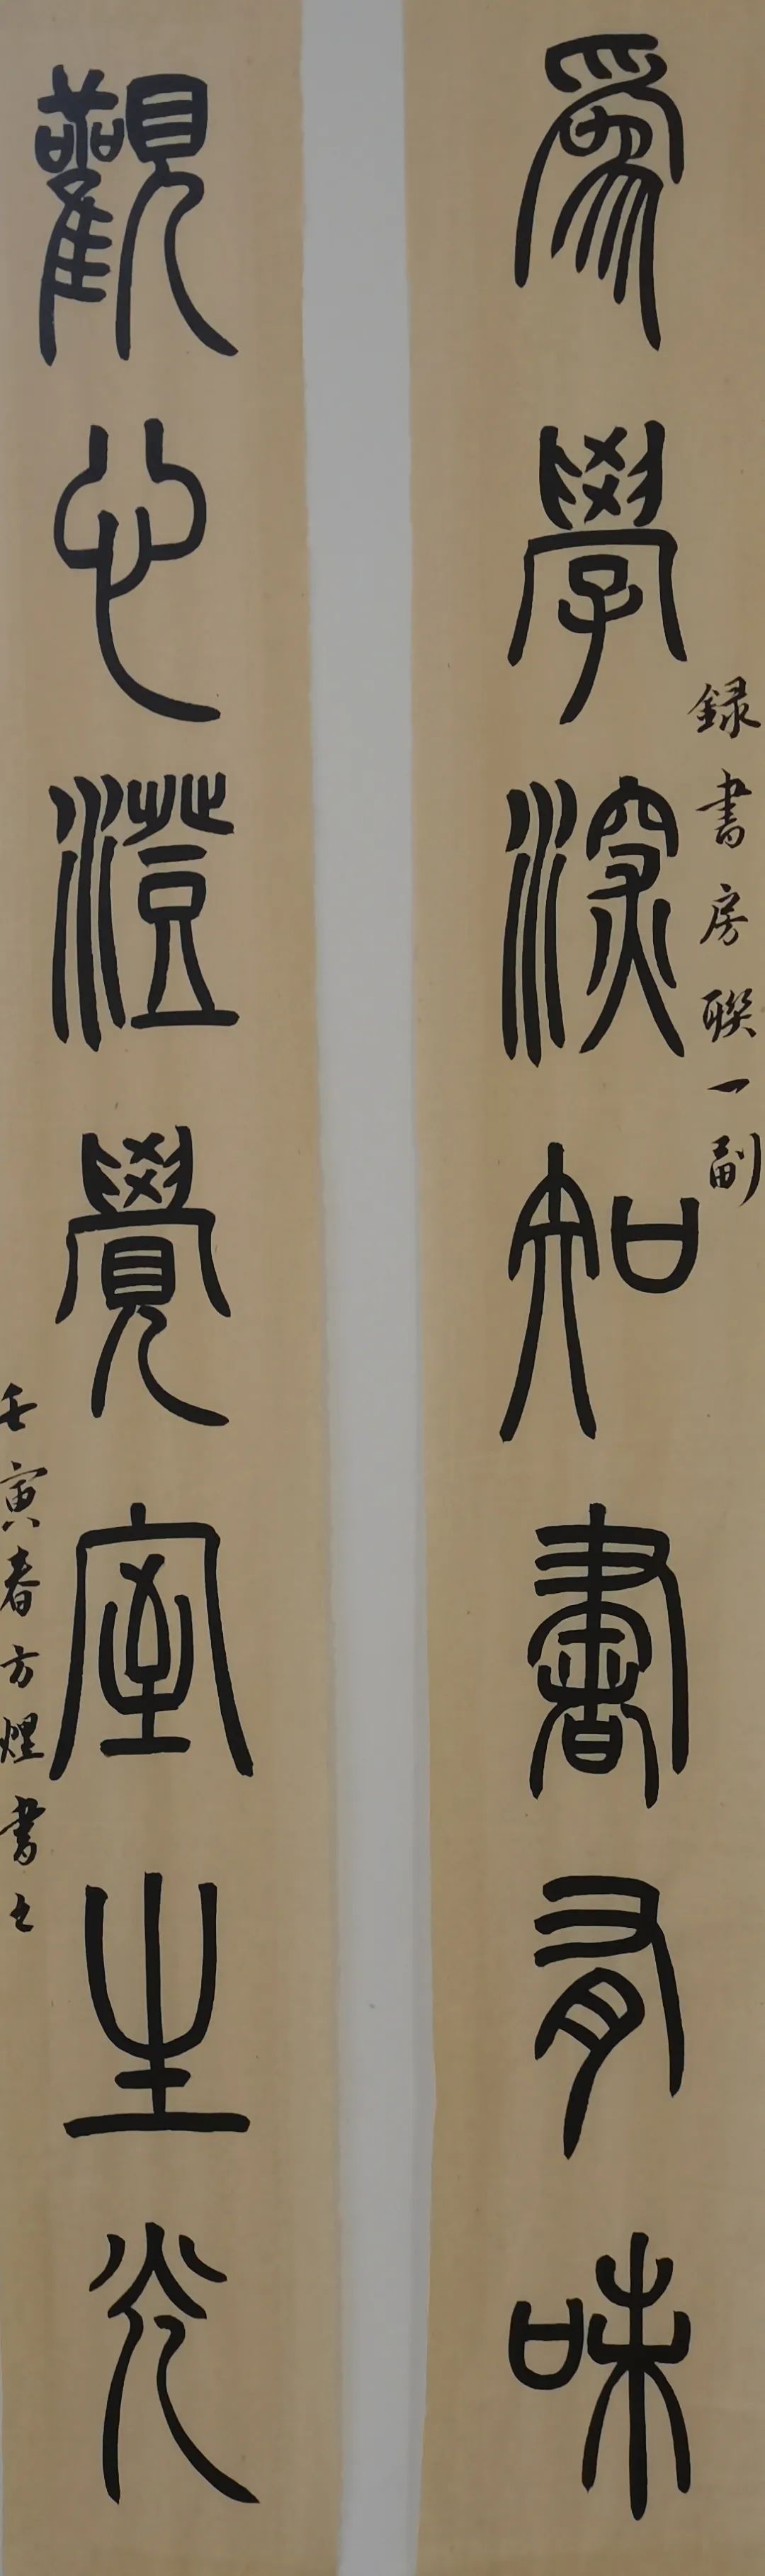 為學深知書有味
録書房聯一副
觀心澄覺室生光
壬寅春方煜書之